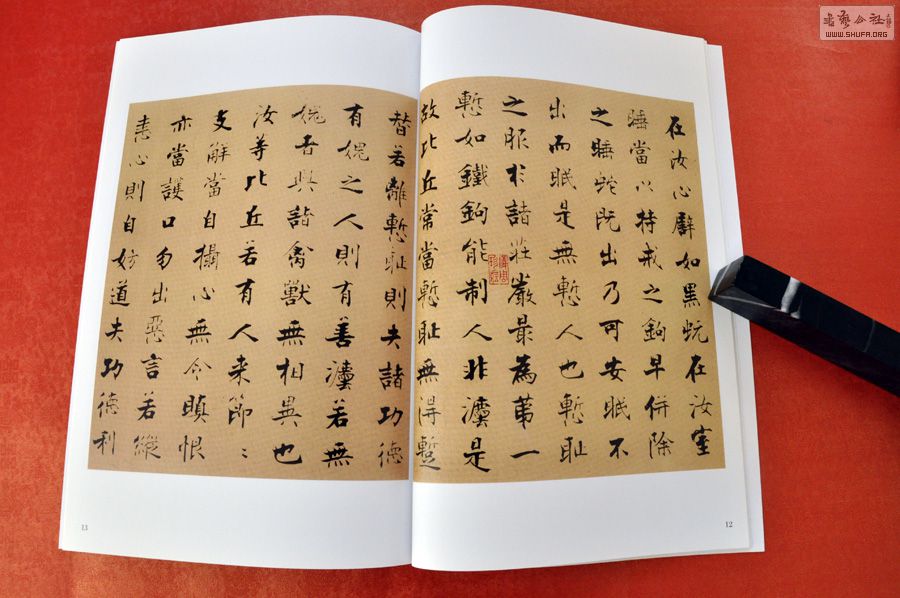 在汝心譬如黑蚖在汝室
睡當以持戒之鉤早併除
之睡蛇既出乃可安眠不
出而眠是無慙人也慙耻
之服於諸莊嚴最為第一
慙如鐵鉤能制人非灋是
故比丘常當慙耻無得蹔
替若離慙耻則失諸功德
有愧之人則有善灋若無
愧者與諸禽獸無相異也
汝等比丘若有人来節〻
支解當自攝心無令瞋恨
亦當護口勿出惡言若縱
恚心則自妨道失功德利
12
13
WWW.SHUFA.ORG